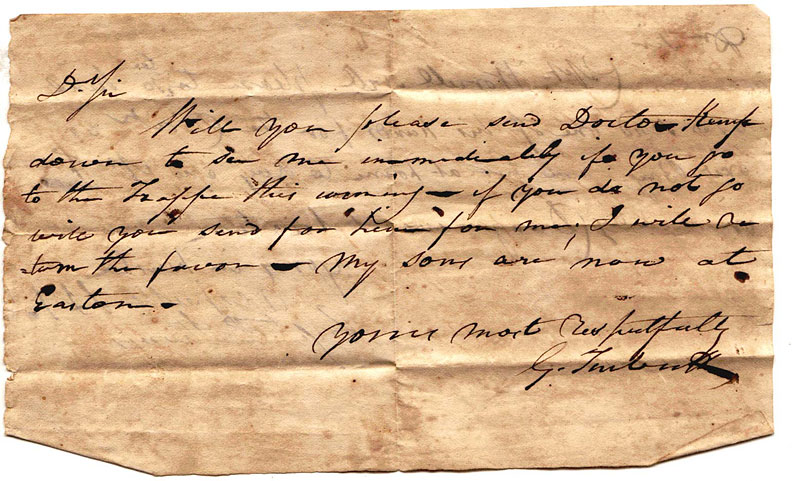 Dr. Sir
Will you please send Doctor Kemp
down to see me immediately if you go
to the Trappe this evening - if you do not go
will you send for him for me; I will re
turn the favor - My sons are now at
Easton -
yours most respectfully
G.